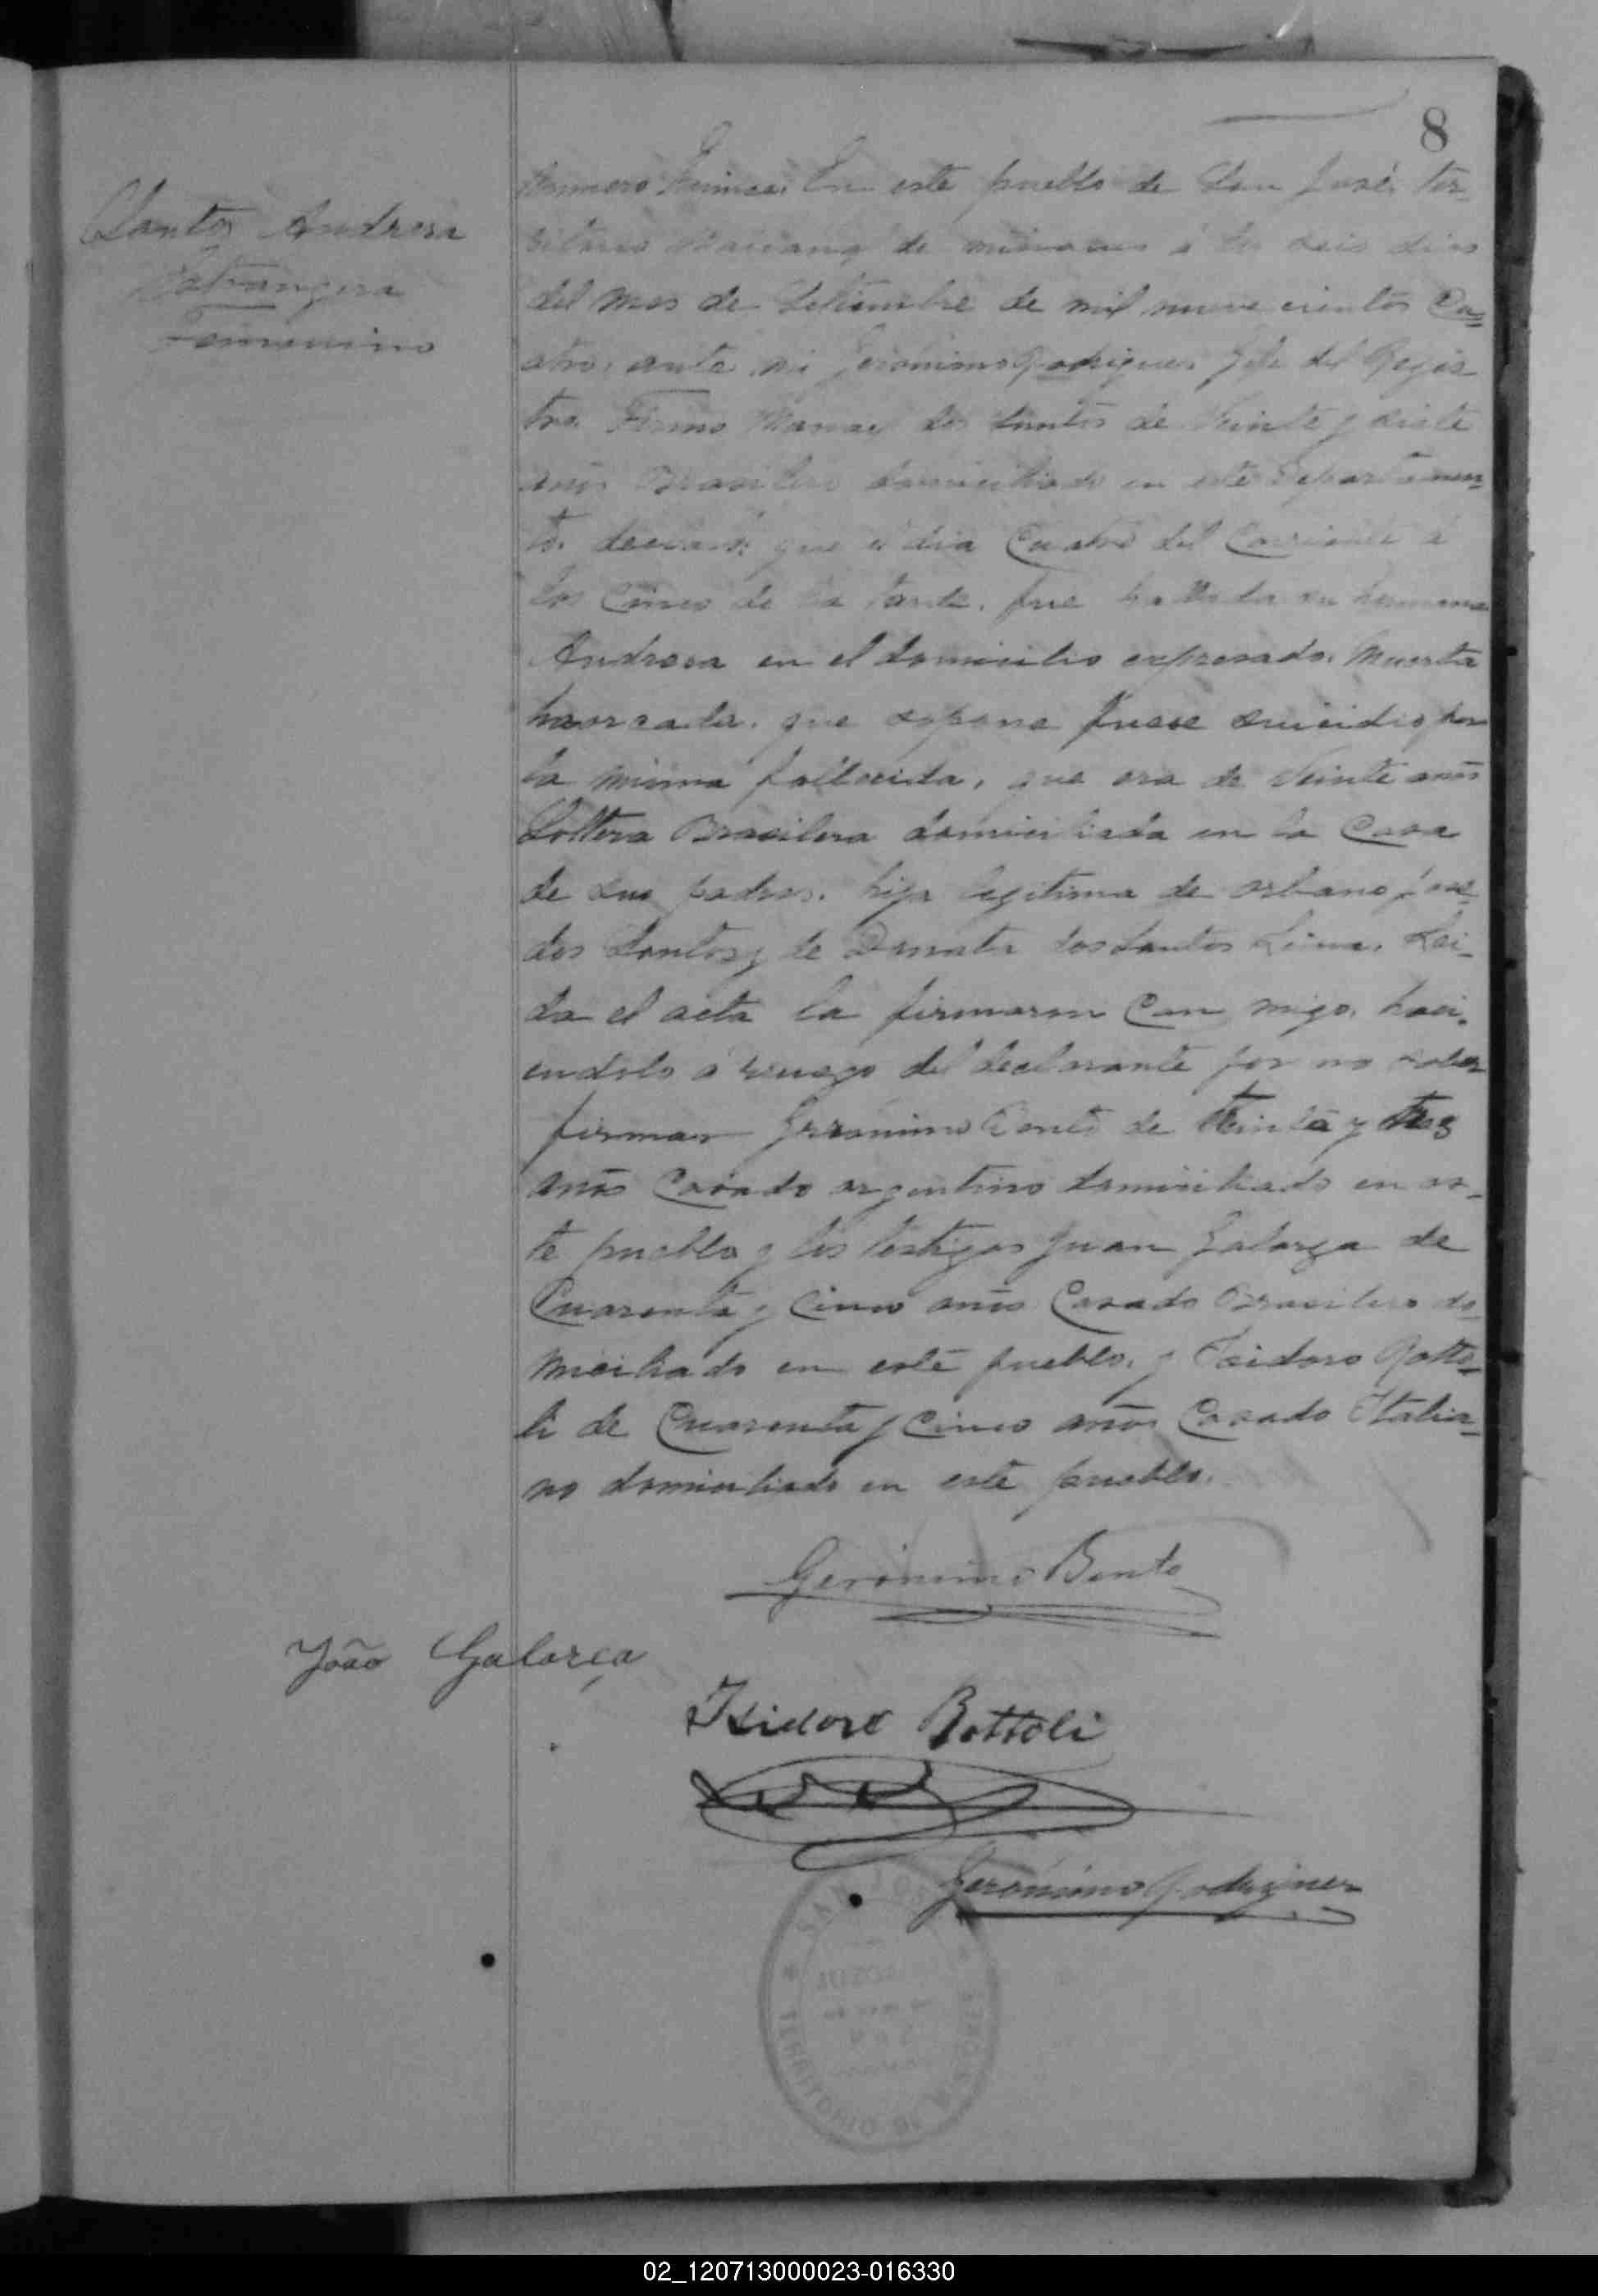 8
Santos Andresa
Estrangera
Femenino
Numero Quince. En este pueblo de San José, ter-
ritorio de misiones á los seis dias
del mes de Setiembre de mil nueve cientos Cu=
atro, ante mi Jeronimo Rodriguez Jefe del Regis
tro. Firmo dos Santos de Veinte y siete
años Brasilero domiciliado en este Departamen=
to. declaró: que el dia Cuatro del Corriente á
las Cinco de la tarde, fue hallada su hermana
Andresa en el domicilio expresado. Muerta
haorcada. que supone fuese suicidio por
la misma fallecida, que era de Veinte años
Soltera Brasilera domiciliada en la Casa
de sus padres. hija legitima de orbano José
dos Santos y de Donata dos Santos Lima. Lei-
da el acta la firmaron Con migo, haci-
endolo á ruego del declarante por no saber
firmar Jeronimo Bento de Treinta y tres
años Casado argentino domiciliado en es-
te pueblo y los testigos Juan Galarza de
Cuarenta y Cinco años Casado Brasilero do-
miciliado en este pueblo, y Isidoro Rotto=
li de Cuarenta y Cinco años Casado Italia=
no domiciliado en este pueblo.
Gerónimo Bento
João Galarça
Isidoro Rottoli
Jeronimo Rodriguez
SAN JOSE
TERRITORIO DE MISIONES
02_120713000023-016330